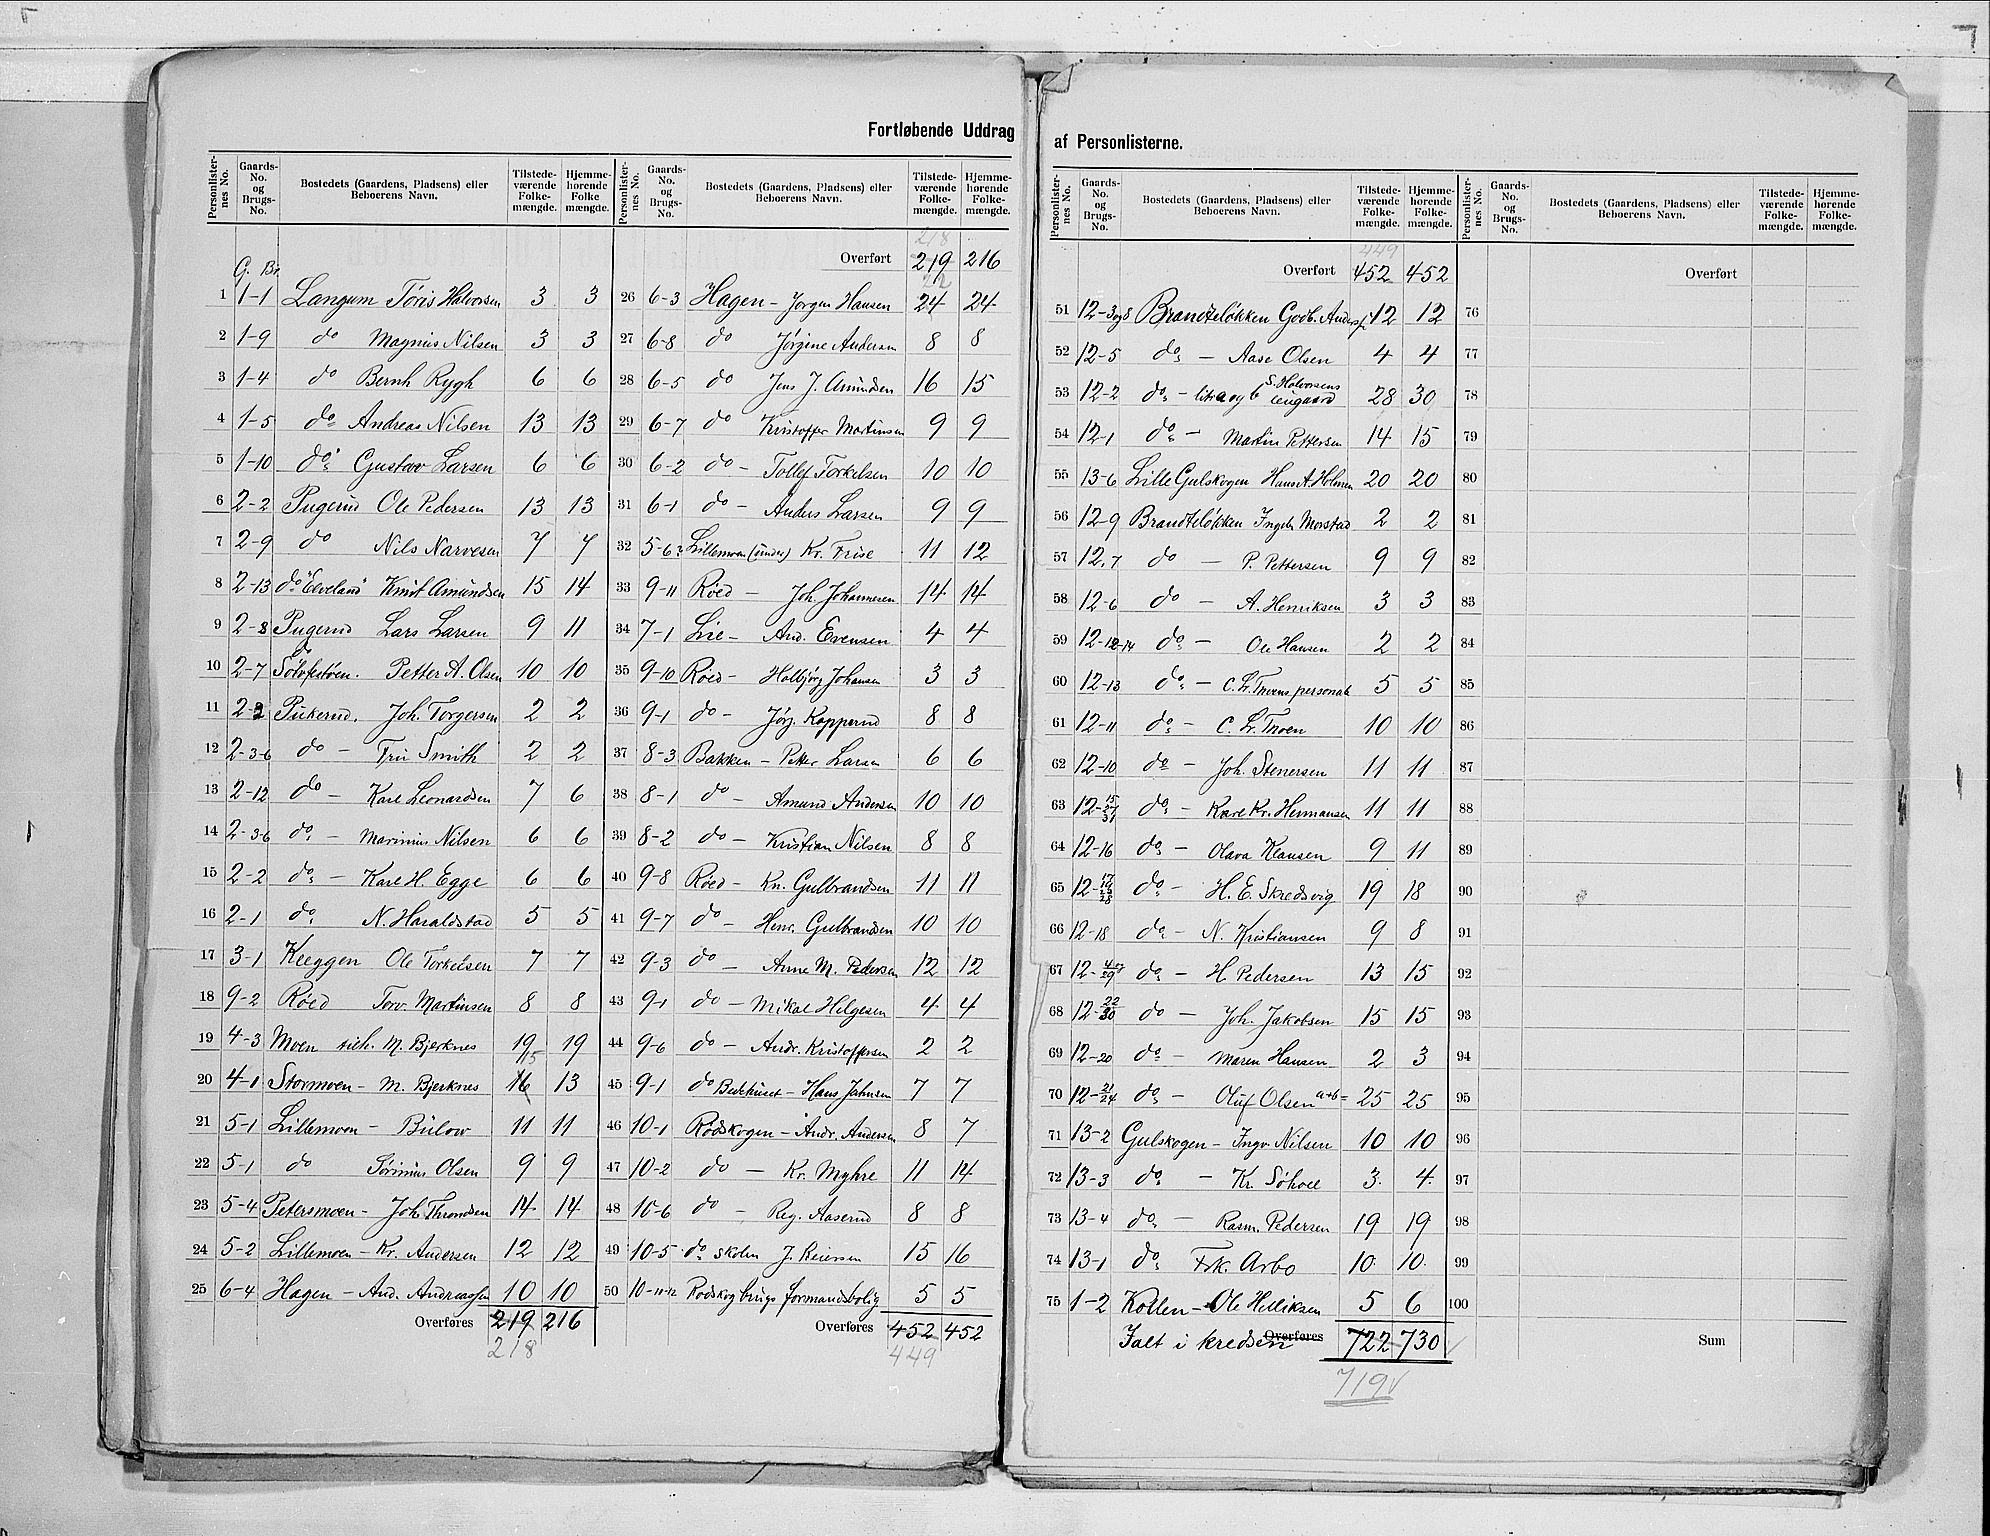 Fortløbende Uddrag
af Personlisterne.
Personlister-nes No. Gaards-No. og Brugs-No. Bostedets (Gaardens, Pladsens) eller Beboerens Navn. Tilstede-værende Folke-mængde. Hjemme-hørende Folke mængde.
G. Br.
1 1-1 Langum Tøris Halvorsen 3 3
2 1-9 do Magnus Nilsen 3 3
3 1-4 do Bernh Rygh 6 6
4 1-5 do Andreas Nilsen 13 13
5 1-10 do Gustav Larsen 6 6
6 2-2 Pugerud Ole Pedersen 13 13
7 2-9 do Nils Narvesen 7 7
8 2-13 do "Elveland" Knut Amundsen 15 14
9 2-8 Pugerud Lars Larsen 9 11
10 2-7 do Sølvfestøen. Petter A. Olsen 10 10
11 2-2 Pukerud. Joh. Torgersen 2 2
12 2-3-6 do - Fru Smith 2 2
13 2-12 do - Karl Leonardsen 7 6
14 2-3-6 do - Marinius Nilsen 6 6
15 2-2 do - Karl H. Egge 6 6
16 2-1 do N. Haraldstad 5 5
17 3-1 Kleggen Ole Torkelsen 7 7
18 9-2 Røed Torv. Martinsen 8 8
19 4-3 Moen M. Bjerknes 19 19
20 4-1 Stormoen - M. Bjerknes 16 15 13
21 5-1 Lillemoen - Bülow 11 11
22 5-1 do Sørinus Olsen 9 9
23 5-4 Petersmoen - Joh. Throndsen 14 14
24 5-2 Lillemoen - Kr. Andersen 12 12
25 6-4 Hagen - And. Andreassen 10 10
Overføres 219 216
218
Personlister-nes No. Gaards-No. og Brugs-No. Bostedets (Gaardens, Pladsens) eller Beboerens Navn. Tilstede-værende Folke-mængde. Hjemme-hørende Folke-mængde.
218
Overført 219 216
22
26 6-3 Hagen - Jørgen Hansen 24 24
27 6-8 do Jørgine Andersen 8 8
28 6-5 do Jens J. Amundsen 16 15
29 6-7 do Kristoffer Martinsen 9 9
30 6-2 do - Tollef Torkelsen 10 10
31 6-1 do - Anders Larsen 9 9
32 5-6? Lillemoen (under) Kr. Frise 11 12
33 9-11 Røed - Joh. Johannesen 14 14
34 7-1 Lie - And. Evensen 4 4
35 9-10 Røed - Halbjørg Johansen 3 3
36 9-1 do - Jørg. Kopperud 8 8
37 8-3 Bakken - Petter Larsen 6 6
38 8-1 do - Amund Andersen 10 10
39 8-2 do - Kristian Nilsen 8 8
40 9-8 Røed - Kn. Gulbrandsen 11 11
41 9-7 do - Henr. Gulbrandsen 10 10
42 9-3 do - Anne M. Pedersen 12 12
43 9-1 do - Mikal Helgesen 4 4
44 9-6 do - Andr. Kristoffersen 2 2
45 9-1 do Bedehuset - Hans Johnsen 7 7
46 10-1 Rødskogen - Andr. Andersen 8 7
47 10-2 do - Kr. Myhre 11 14
48 10-6 do - Reg. Aaserud 8 8
49 10-5 do skolen J. Reiersen 15 16
50 10-11-12 Rødskog brugs formandsbolig 5 5
Overføres 452 452
449
Personlister-nes No. Gaards-No. og Brugs-No. Bostedets (Gaardens, Pladsens) eller Beboerens Navn. Tilstede-værende Folke-mængde. Hjemme-hørende Folke-mængde.
449
Overført 452 452
51 12-3og8 Brandteløkken Godb. Anders 12 12
52 12-5 do - Aase Olsen 4 4
53 12-2 do - litra a og b S. Halvorsens leiegaard 28 30
54 12-1 do - Martin Pettersen 14 15
55 13-6 Lille Gulskogen Hans A. Holmen 20 20
56 12-9 Brandteløkken Ingeb. Morstad 2 2
57 12.7 do - P. Pettersen 9 9
58 12-6 do - A. Henriksen 3 3
59 12-12-14 do - Ole Hansen 2 2
60 12-13 do - C. L. Thoens personale 5 5
61 12-11 do - C. L. Thoen 10 10
62 12-10 do - Joh. Stenersen 11 11
63 12-15 27 31 do - Karl Kr. Hermansen 11 11
64 12-16 do - Olava Klausen 9 11
65 12-17 19 28 do - H. E. Skredsvig 19 18
66 12-18 do - N. Kristiansen 9 8
67 12-4 og 29 do - H. Pedersen 13 15
68 12-22 30 do - Joh. Jakobsen 15 15
69 12-20 do - Maren Hansen 2 3
70 12-21 24 do - Oluf Olsen a+b= 25 25
71 13-2 Gulskogen - Ingv. Nilsen 10 10
72 13-3 do - Kr. Søhoel 3. 4.
73 13-4 do - Rasm. Pedersen 19 19
74 13-1 do Frk. Arbo 10. 10.
75 1-2 Kollen - Ole Helliksen 5 6
Ialt i kredsen Overføres 722 730
719 ✓
Personlister-nes No. Gaards-No. og Brugs-No. Bostedets (Gaardens, Pladsens) eller Beboerens Navn. Tilstede-værende Folke-mængde. Hjemme-hørende Folke-mængde.
Overført
76
77
78
79
80
81
82
83
84
85
86
87
88
89
90
91
92
93
94
95
96
97
98
99
100
Sum